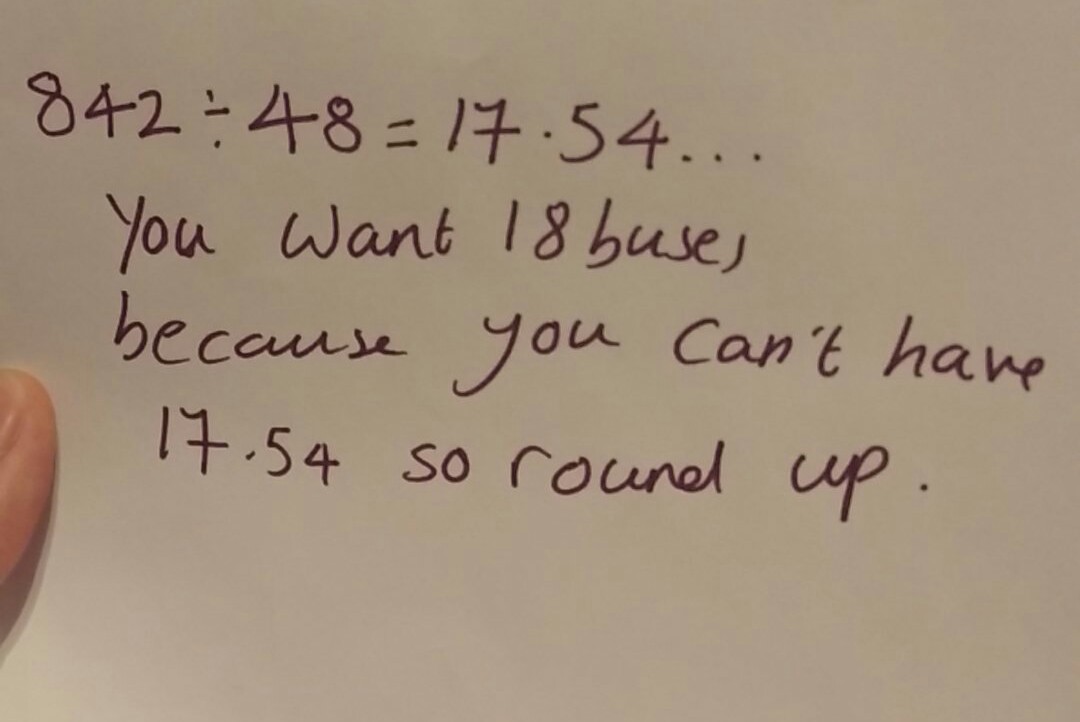 842 ÷ 48 = 17.54...
You want 18 buses
because you can't have
17.54 so round up.